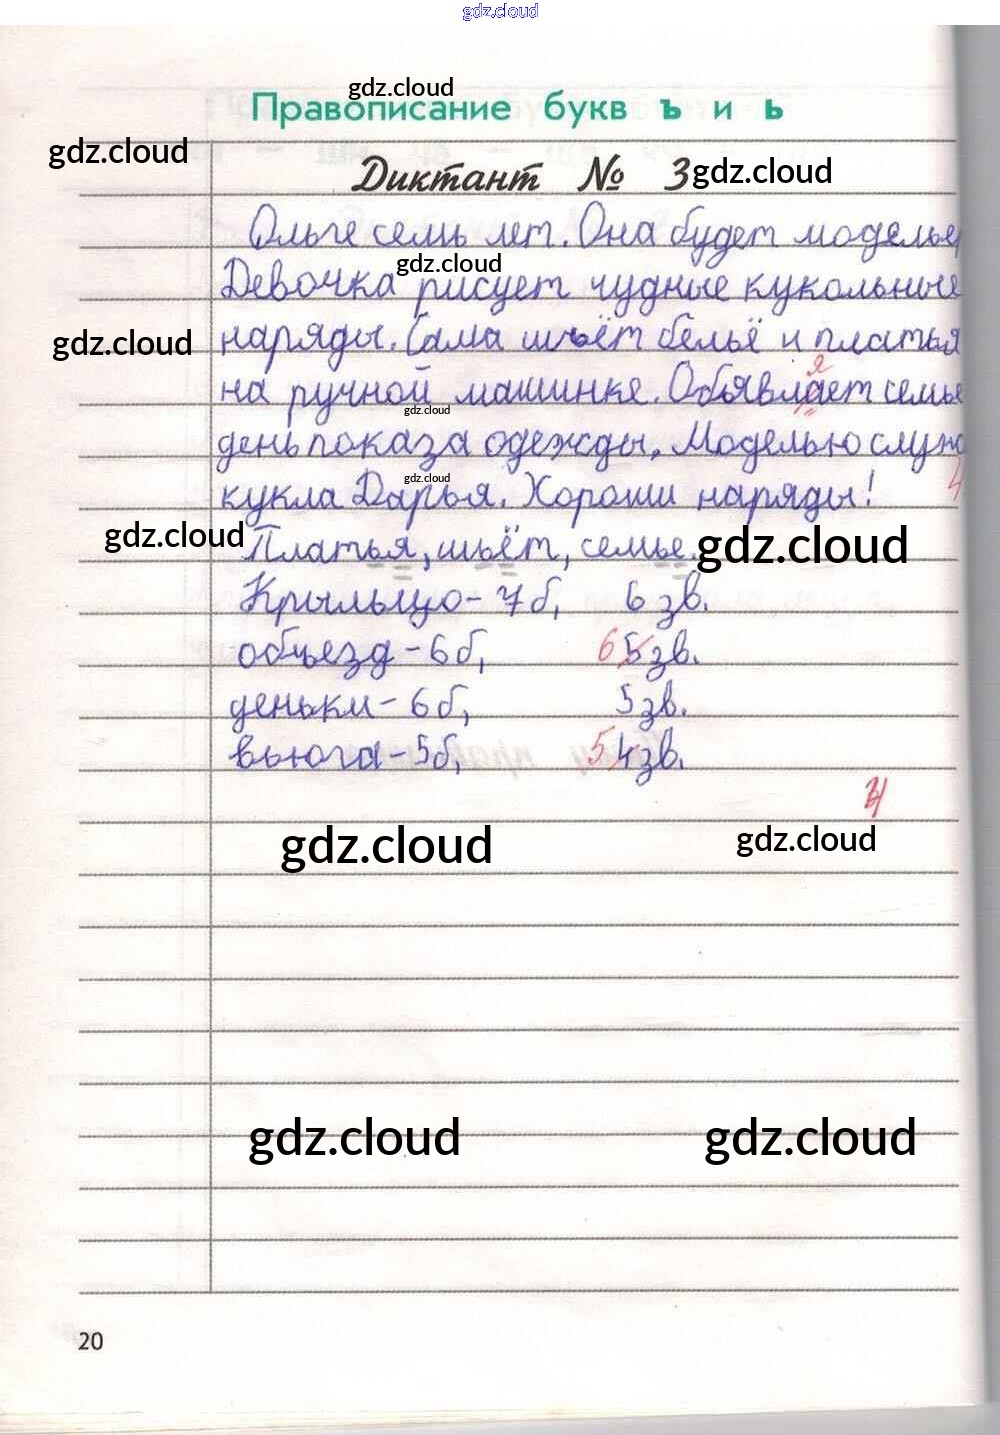 gdz.cloud
gdz.cloud
Правописание букв ъ и ь
gdz.cloud
Диктант № 3
gdz.cloud
Ольге семь лет. Она будет моделье
gdz.cloud
Девочка рисует чудные кукольные
gdz.cloud
наряды. Сама шьёт бельё и платья
я
на ручной машинке. Объявлает семье
gdz.cloud
день показа одежды. Моделью служ
gdz.cloud
кукла Дарья. Хороши наряды!
4
gdz.cloud
Платья, шьёт, семье.
gdz.cloud
Крыльцо - 7 б, 6 зв.
объезд - 6 б, 6 5 зв.
деньки - 6 б, 5 зв.
вьюга - 5 б, 5 4 зв.
gdz.cloud
gdz.cloud
gdz.cloud
gdz.cloud
20